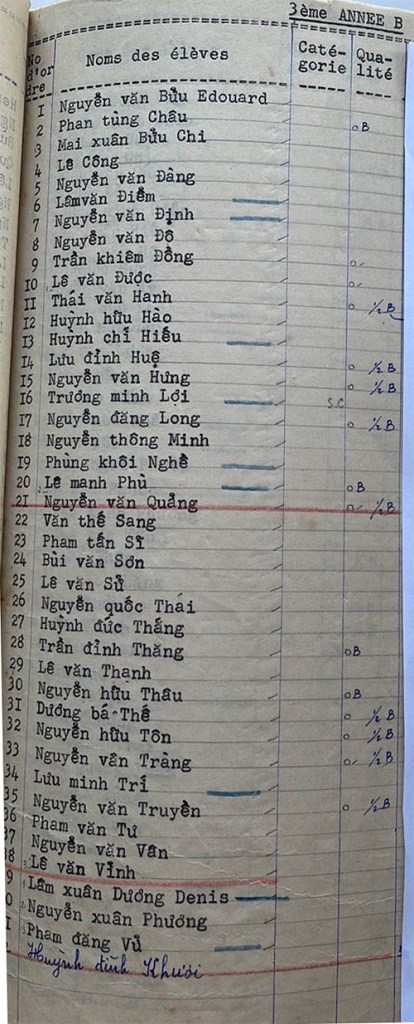 3ème ANNEE B
No d'ordre Noms des élèves Caté-gorie Qua-lité
1 Nguyễn văn Bửu Edouard
2 Phan tùng Châu oB
3 Mai xuân Bửu Chi
4 Lê Công
5 Nguyễn văn Đàng
6 Lâmvăn Điểm
7 Nguyễn văn Định
8 Nguyễn văn Đô
9 Trần khiêm Đồng o
10 Lê văn Được o
11 Thái văn Hanh o ½B
12 Huỳnh hữu Hảo
13 Huỳnh chí Hiếu
14 Lưu đình Huệ o ½B
15 Nguyễn văn Hưng o ½B
16 Trương minh Lợi S.C
17 Nguyễn đăng Long o ½B
18 Nguyễn thông Minh
19 Phùng khôi Nghê
20 Lê manh Phù oB
21 Nguyễn văn Quảng o ½B
22 Văn thế Sang
23 Phạm tấn Sĩ
24 Bùi văn Sơn
25 Lê văn Sử
26 Nguyễn quốc Thái
27 Huỳnh đức Thắng
28 Trần đình Thăng oB
29 Lê văn Thạnh
30 Nguyễn hữu Thâu oB
31 Dương bá Thế o ½B
32 Nguyễn hữu Tôn o ½B
33 Nguyễn văn Tràng o ½B
34 Lưu minh Trí
35 Nguyễn văn Truyền o ½B
36 Phạm văn Tư
37 Nguyễn văn Vân
8 Lê văn Vinh
9 Lâm xuân Dương Denis
0 Nguyễn xuân Phương
1 Phạm đăng Vủ
Huỳnh đình Khươi